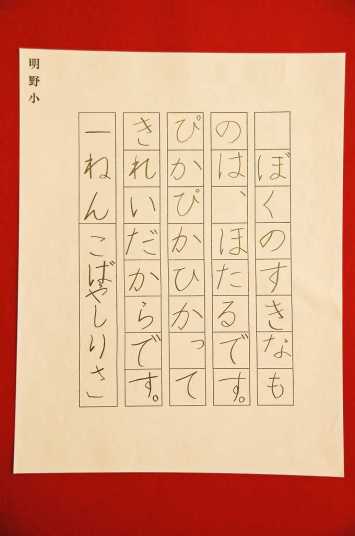 明野小
ぼくのすきなも
のは、ほたるです。
ぴかぴかひかって
きれいだからです。
一ねん こばやしりさこ